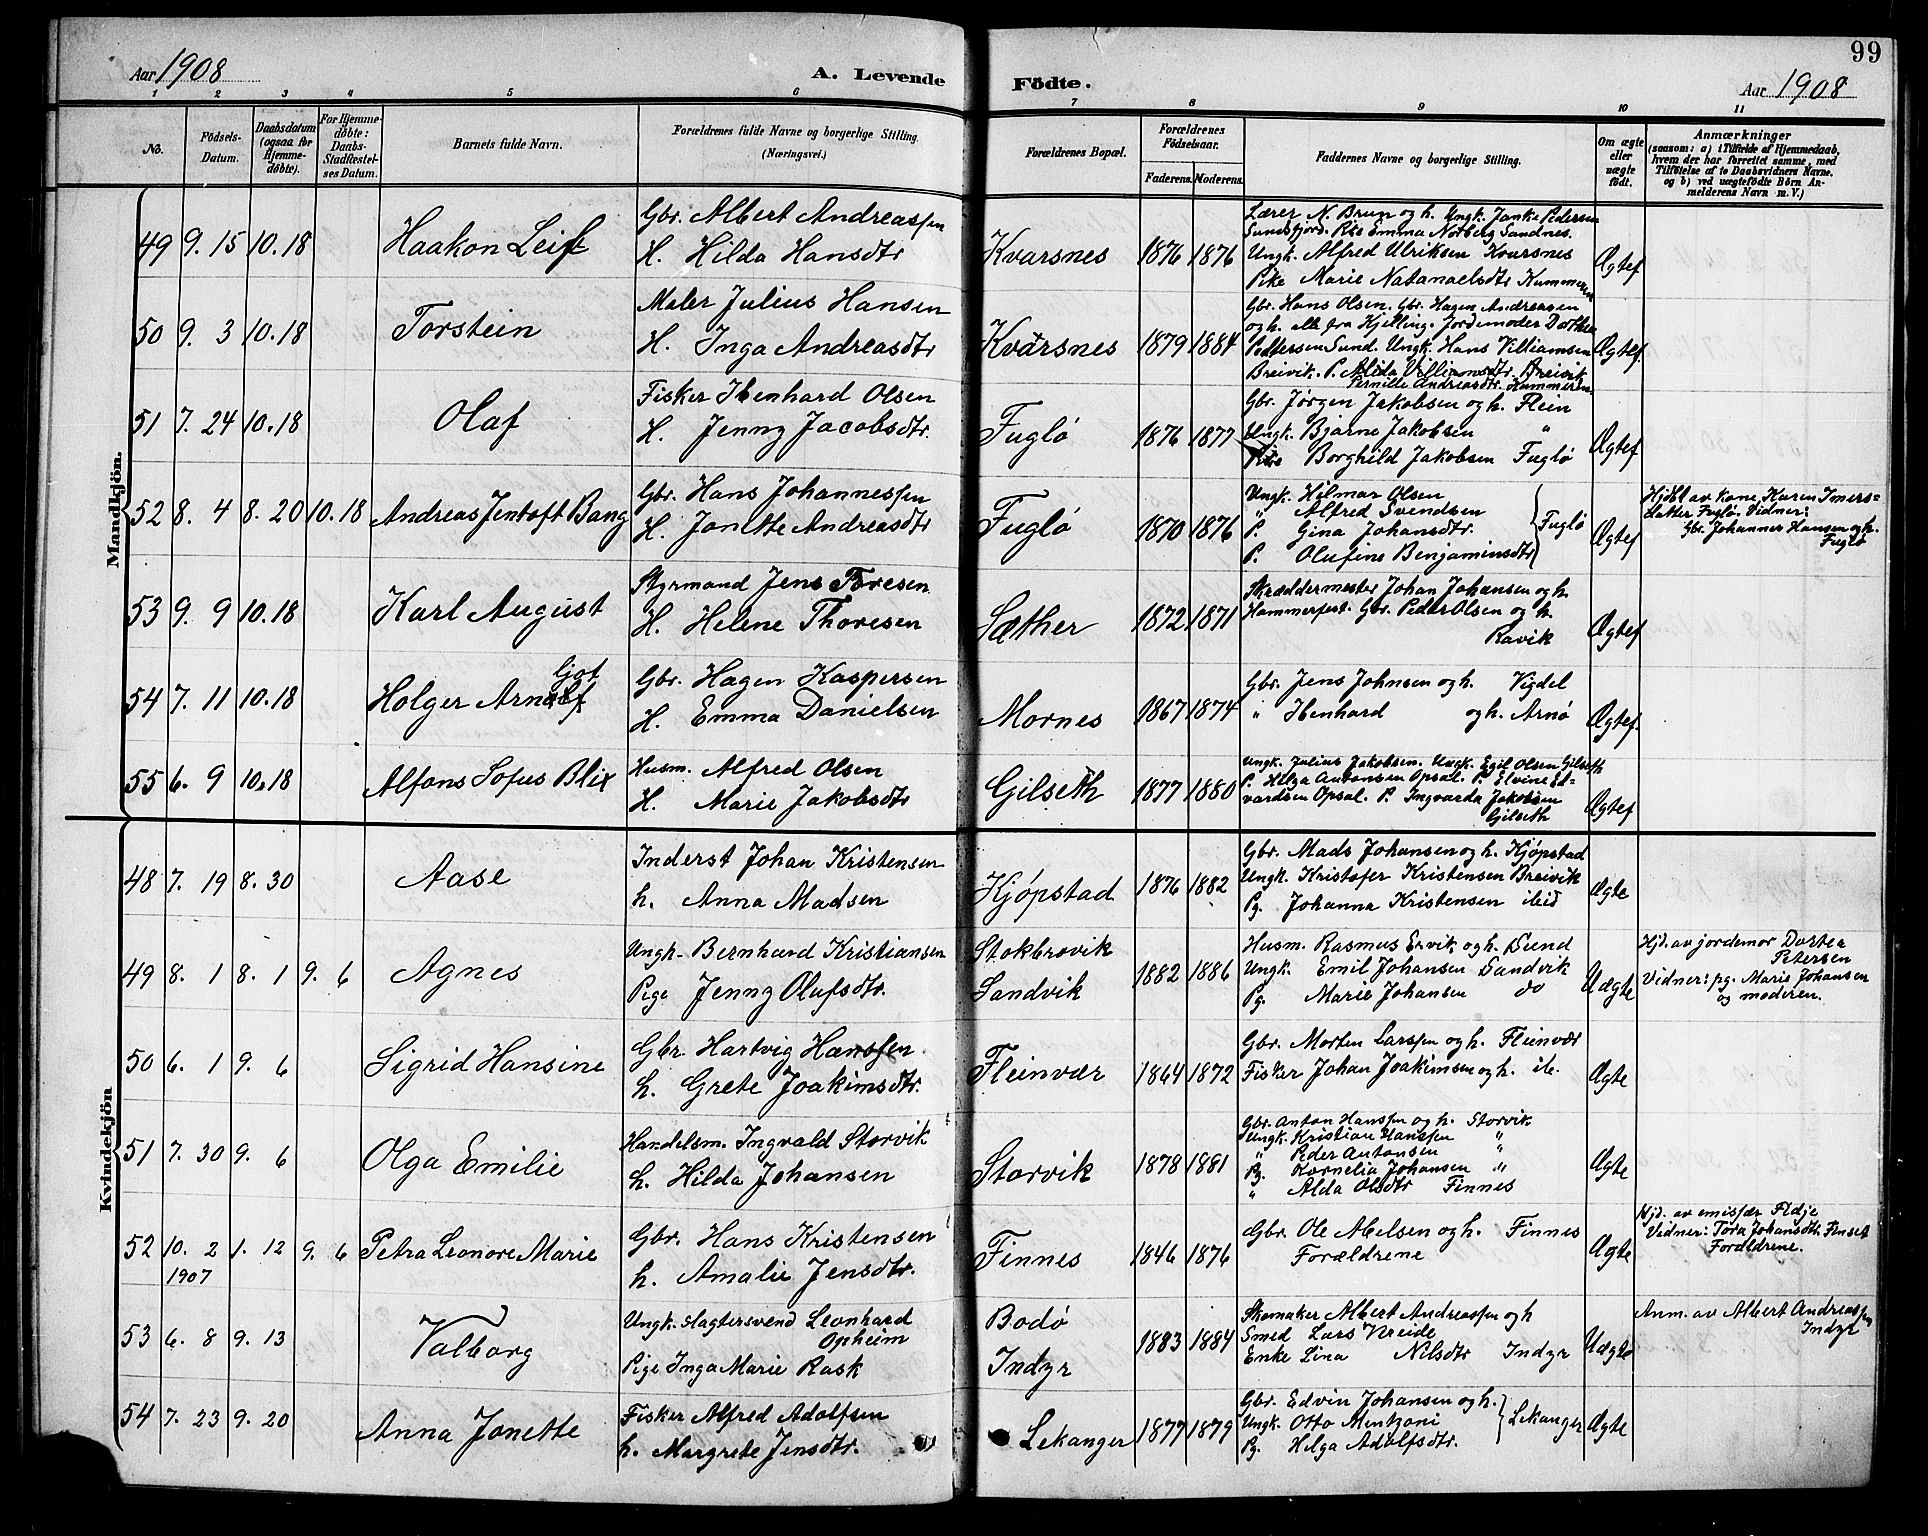 99
Aar 1908
A. Levende
Födte.
Aar 1908
1 2 3 4 5 6 7 8 9 10 11
No.
Födsels-
Datum.
Daabsdatum
(ogsaa for
Hjemme-
döbte).
For Hjemme-
döbte:
Daabs-
Stadfæstel-
ses Datum.
Barnets fulde Navn.
Forældrenes fulde Navne og borgerlige Stilling.
(Næringsvei.)
Forældrenes Bopæl.
Forældrenes
Födselsaar.
Faderens. Moderens.
Faddernes Navne og borgerlige Stilling.
Om ægte
eller
uægte
födt.
Anmærkninger
(saasom: a) i Tilfælde af Hjemmedaab,
hvem der har forrettet samme, med
Tilföielse af to Daabsvidners Navne.
og b) ved uægtefödte Börn An-
melderens Navn m. V.)
Mandkjön.
49 9. 15 10.18 Haakon Leif
Gbr. Albert Andreassen
H. Hilda Hansdtr
Kvarsnes 1876 1876
Lærer N. Brun og h. Ungk. Janke Pedersen
Sundsfjord. Pike Emma Norberg Sandnes.
Ungk. Alfred Ulriksen Kvarsnes
Pike Marie Natanaelsdtr Kummeren
Ægtef
50 9. 3 10.18 Torstein
Maler Julius Hansen
H. Inga Andreasdtr
Kvarsnes 1879 1884
Gbr. Hans Olsen. Gbr. Hagen Andreasen
og h. alle fra Kjelling. Jordemoder Dorthea
Pettersen Sund. Ungk. Hans Villiamsen
Breivik. P. Alida Villiamsdtr. Breivik
Pernille Andreasdtr. Hammeren
Ægtef.
51 7. 24 10.18 Olaf
Fisker Ibenhard Olsen
H. Jenny Jacobsdtr.
Fuglö 1876 1877
Gbr. Jørgen Jakobsen og h. Flein
Ungk. Bjarne Jakobsen "
Pike Borghild Jakobsen Fuglø
Ægtef
52 8. 4 8. 20 10.18 Andreas Jentoft Bang
Gbr. Hans Johannessen
H. Jonette Andreasdtr
Fuglö 1870 1876
Ungk. Hilmar Olsen
" Alfred Svendsen
P. Gina Johansdtr.
P. Olufine Benjaminsdtr
Fuglø
Ægtef
Hjdbt av kone Karen Imers-
datter Fuglø. Vidner:
Gbr. Johannes Hansen og h.
Fuglø
53 9. 9 10.18 Karl August
Styrmand Jens Toresen
H. Helene Thoresen
Sæther 1872 1871
Skræddermester Johan Johansen og h.
Hammerfest. Gbr. Peder Olsen og h.
Ravik
Ægtef
54 7. 11 10.18 Holger Arn
Gjot
Gbr. Hagen Kaspersen
H. Emma Danielsen
Mornes 1867 1874
Gbr. Jens Johnsen og h. Vigdel
" Ibenhard og h. Arnø
Ægtef.
55 6. 9 10.18 Alfons Sofus Blix
Husm. Alfred Olsen
H. Marie Jakobsdtr
Gilseth 1877 1880
Ungk. Julius Jakobsen. Ungk. Egil Olsen Gilseth
P. Helga Antonsen Opsal. P. Elvine Ed-
vardsen Opsal. P. Ingvarda Jakobsen
Gilseth
Ægtef
Kvindekjön
48 7. 19 8. 30 Aase
Inderst Johan Kristensen
h. Anna Madsen
Kjøpstad 1876 1882
Gbr. Mads Johansen og h. Kjøpstad
Ungk. Kristofer Kristensen Breivik
Pg. Johanna Kristensen ibid
Ægte
49 8. 1 8. 1 9. 6 Agnes
Ungk. Bernhard Kristiansen
Pige Jenny Olufsdtr.
Stokbrovik
Sandvik
1882 1886
Husm. Rasmus Ervik og h. Sund
Ungk. Emil Johansen Sandvik
Pg. Marie Johansen do
Uægte
Hjd. av jordemor Dortea
Petersen
Vidner: pg. Marie Johansen
og moderen.
50 6. 1 9. 6 Sigrid Hansine
Gbr. Hartvig Hanssen
h. Grete Joakimsdtr.
Fleinvær 1864 1872
Gbr. Morten Larssen og h. Fleinvær
Fisker Johan Joakimsen og h. ib.
Ægte
51 7. 30 9. 6 Olga Emilie
Handelsm. Ingvald Storvik
h. Hilda Johansen
Storvik 1878 1881
Gbr. Anton Hanssen og h. Storvik
Ungk. Kristian Hanssen "
" Peder Antonsen "
Pg. Kornelia Johansen "
" Alda Olsdtr Finnes
Ægte
52 10. 2 1. 12 9. 6 Petra Leonore Marie
1907
Gbr. Hans Kristensen
h. Amalie Jensdtr.
Finnes 1846 1876
Gbr. Ole Abelsen og h. Finnes
Forældrene
Ægte
Hjd. av emissær Fleje
Vidner: Tora Johansdtr. Finset
Forældrene.
53 6. 8 9. 13 Valborg
Ungk. slagtersvend Leonhard
Opheim
Pige Inga Marie Rask
Bodö
Indyr
1883 1884
Skomaker Albert Andreassen og h
Smed Lars Kreide
Enke Lina Nilsdtr Indyr
Uægte
Anm. av Albert Andreassen
Indyr
54 7. 23 9. 20 Anna Jonette
Fisker Alfred Adolfsen
h. Margrete Jensdtr.
Lekanger 1877 1879
Gbr. Edvin Johansen og h.
Ungk. Otto Mentzoni
Pg. Helga Adolfsdtr.
Lekanger
Ægte